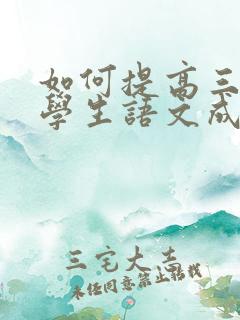 如何提高三
學生語文成
三宅大志
未經同意禁止轉載